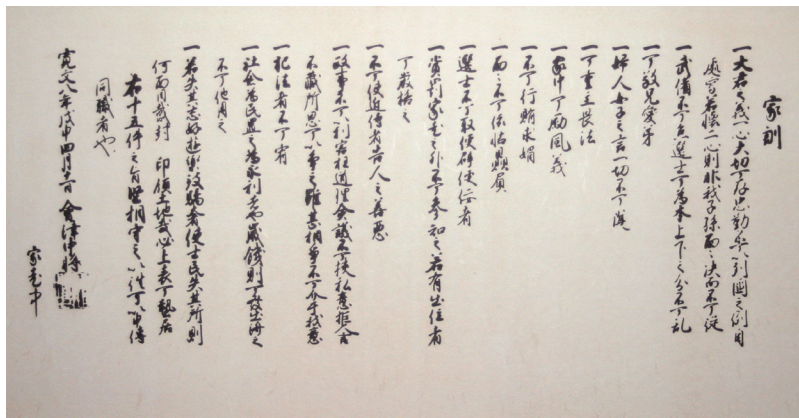 家訓
一大君之義一心大切可存忠勤不可以列國之例自
處焉若懷二心則非我子孫面々決而不可従
一武備不可怠選士可為本上下之分不可乱
一可敬兄愛弟
一婦人女子之言一切不可聞
一可重主畏法
一家中可励風義
一不可行賄求媚
一面々不可依怙贔屓
一選士不可取便辟便佞者
一賞罰家老之外不可参知之若有出位者
可嚴格之
一不可使近侍者告人之善悪
一政事不可以利害枉道理僉議不可挟私意拒人言
不蔵所思可以争之雖甚相争不可介于我意
一犯法者不可宥
一社倉為民置之為永利者也歳餓則可發出濟之
不可他用之
一若失其志好遊樂致驕奢使士民失其所則
何面目戴封印領土地哉必上表可蟄居
右十五件之旨堅相守之以往可以申傳
同職者也
寛文八年戊申四月十一日 會津中將
家老中